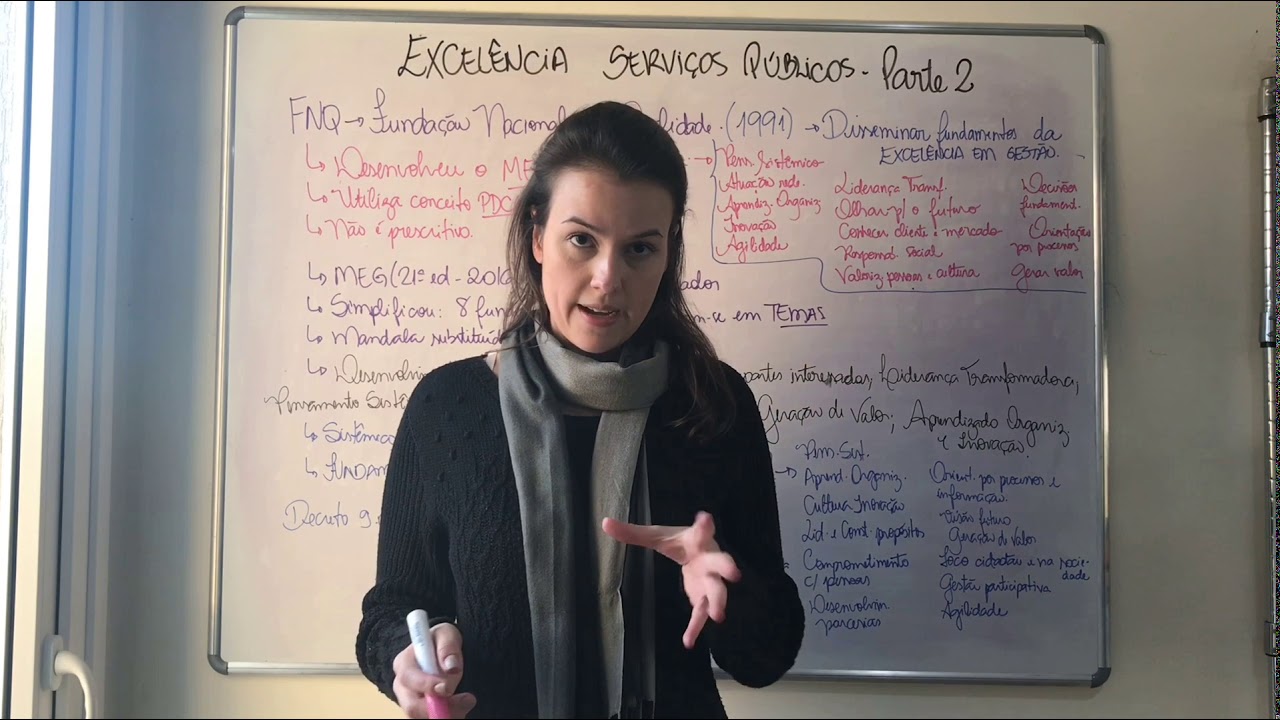 EXCELÊNCIA SERVIÇOS PÚBLICOS - Parte 2
FNQ → Fundação Nacional lidade. (1991) → Disseminar fundamentos da
EXCELÊNCIA EM GESTÃO.
↳ Desenvolveu o ME
↳ Utiliza conceito PDC
↳ Não é prescritivo.
→ Pens. Sistêmico
Atuação rede.
Aprendiz. Organiz
Inovação
Agilidade
Liderança Transf.
Olhar p/ o futuro
Conhecer cliente e mercado
Responsab. social
Valoriz. pessoas e cultura
Decisões
fundament.
Orientação
por processos
Gerar valor
↳ MEG (21ª ed - 2016 ador
↳ Simplificou: 8 fun m-se em TEMAS
↳ Mandala substituíd
↳ Desenvolvim partes interessadas, Liderança Transformadora,
Pensamento Sistê Geração de Valor; Aprendizado Organiz
e Inovação.
↳ Sistêmic
↳ FUNDAM
Decreto 9.
Pens. Sist.
→ Aprend. Organiz.
Cultura Inovação
Lid. e Const. propósitos
Comprometimento
c/ pessoas
Desenvolvim.
parcerias
Orient. por processos e
informação.
Visão futuro
Geração de Valor
Foco cidadão e na socie-
dade
Gestão participativa
Agilidade